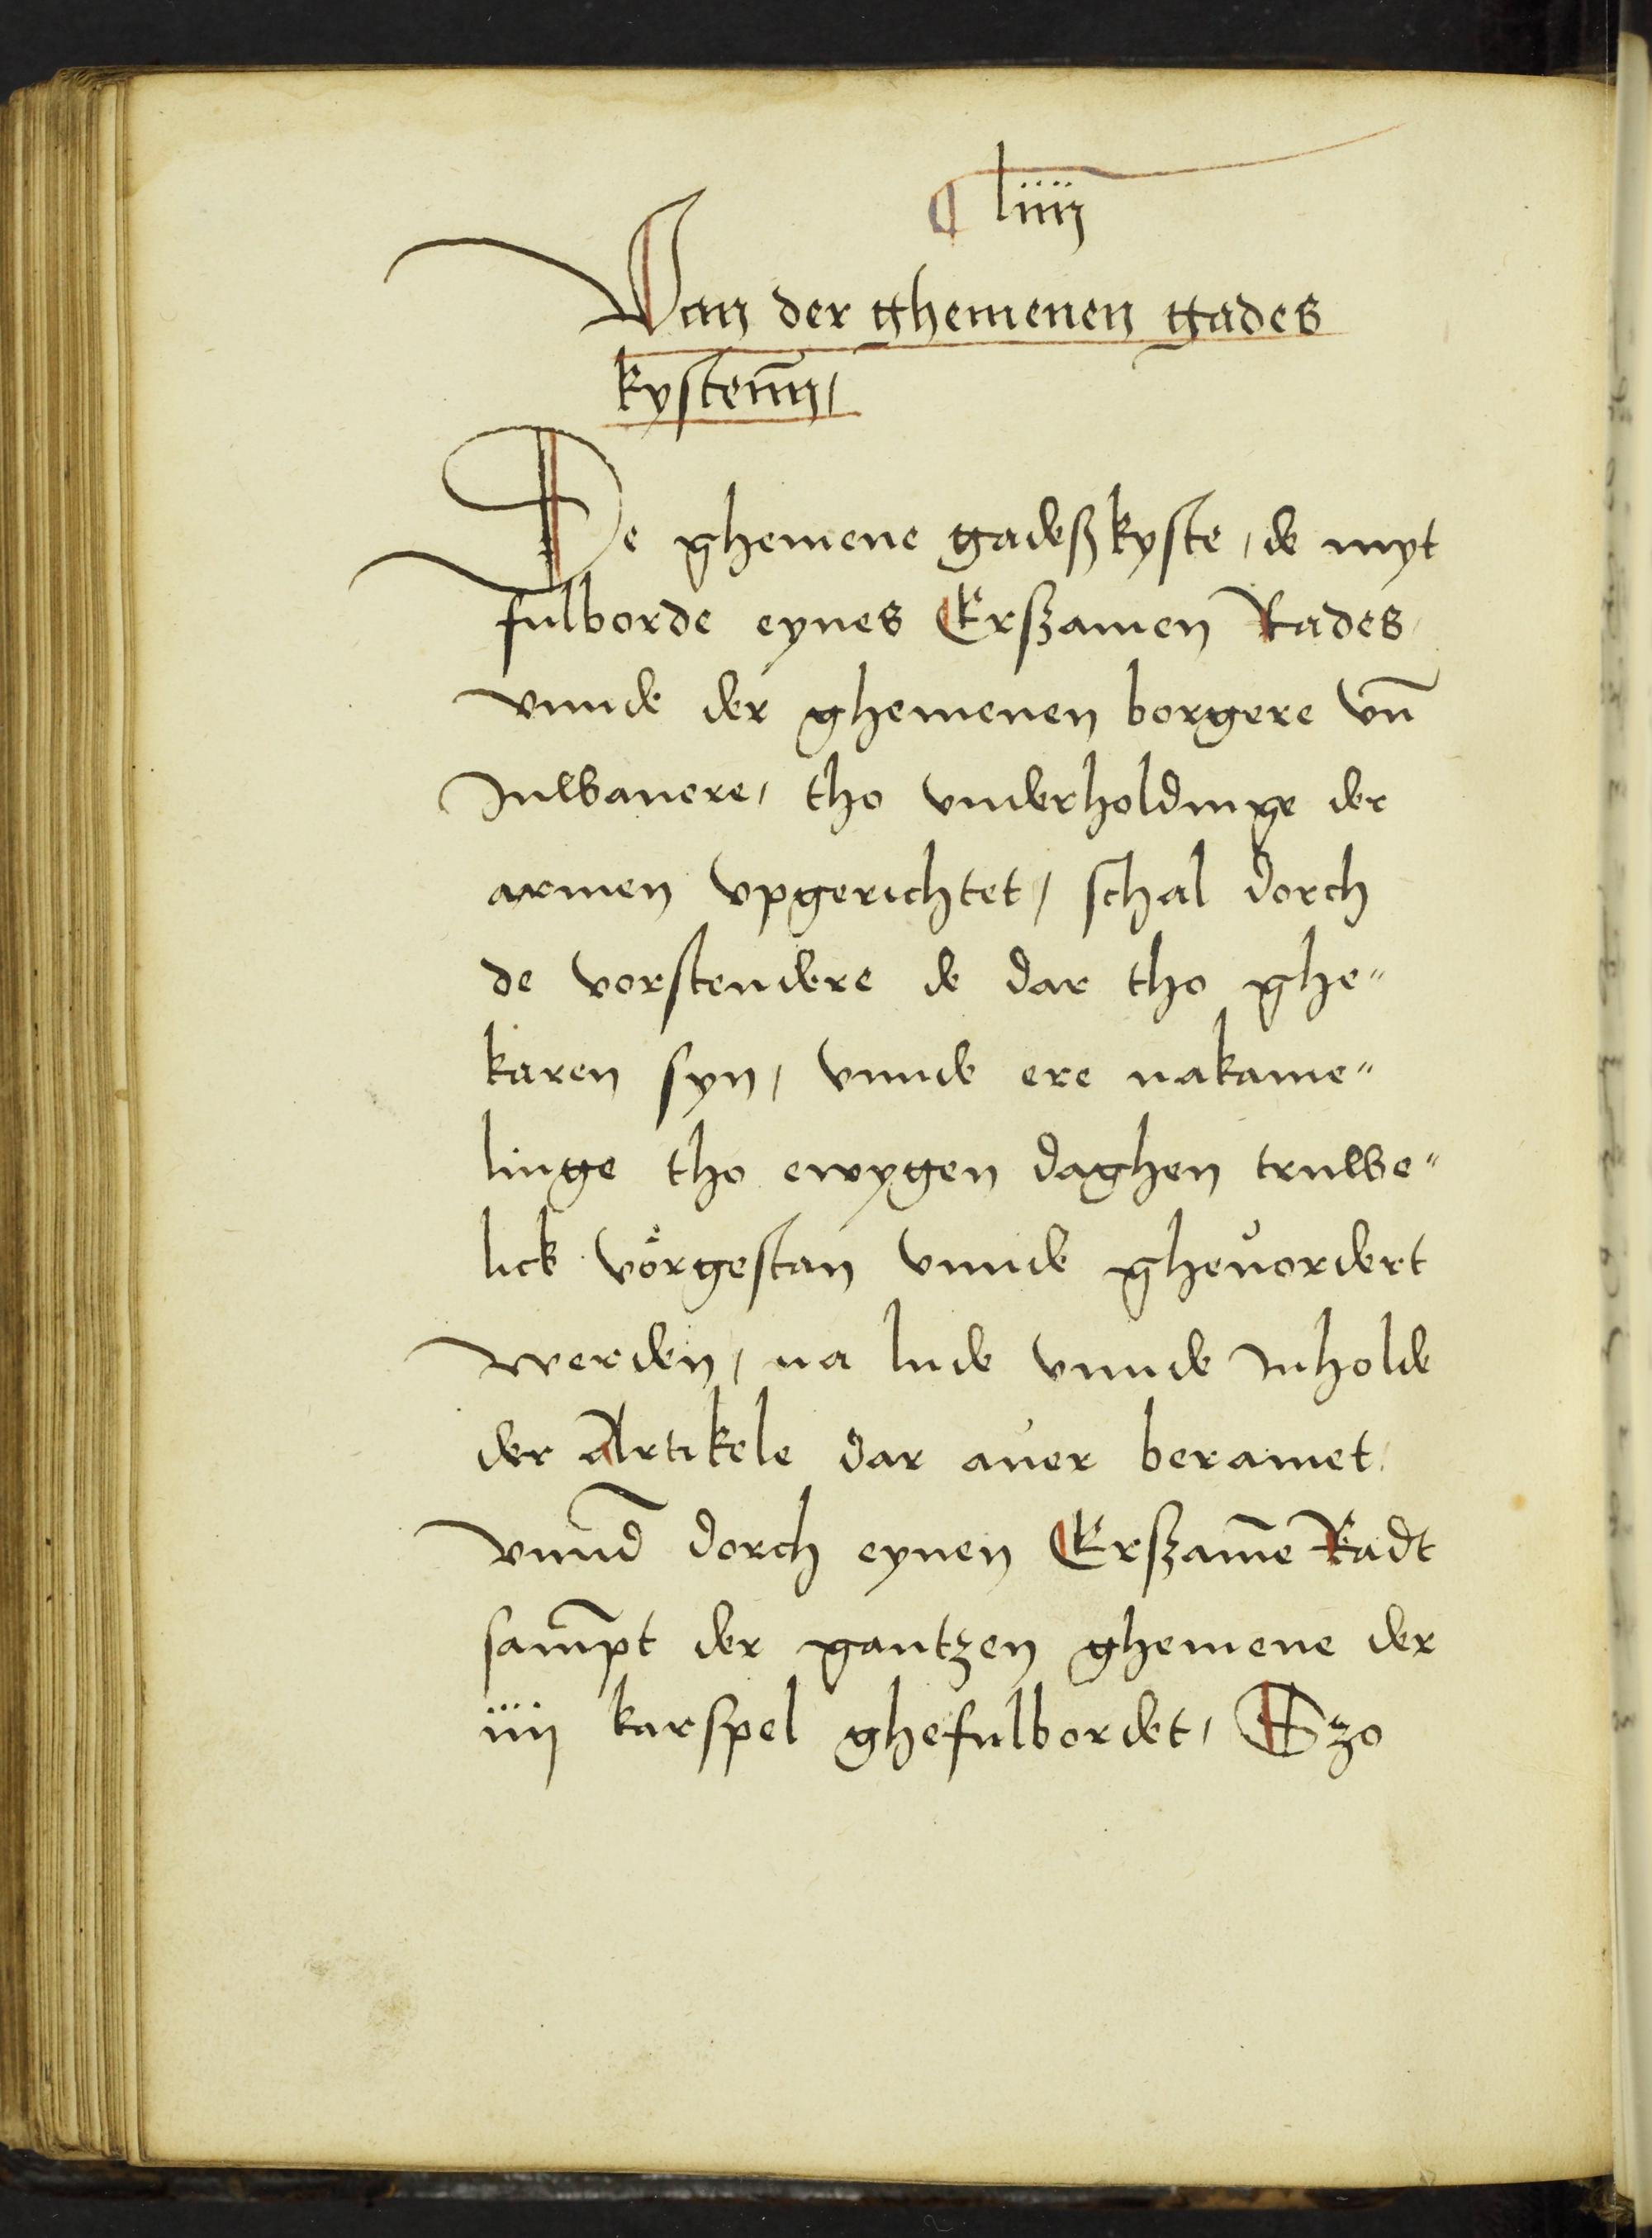 ¶ liiij
Van der ghemenen gades
kystenn̄,
De ghemene gadeßkyste, de myt
fulborde eynes Erßamen Rades,
vnnde der ghemenen borgere vn̄
Inwanere, tho vnderholdinge der
armen vpgerichtet, schal dorch
de vorstendere de dar tho ghe„
karen syn, vnnde ere nakame„
linge tho ewygen daghen truwe„
lick vörgestan vnnde gheuordert
werden, na lude vnnde Inholde
der Artikele dar auer beramet,
vnnd̄ dorch eynen Erßamē Radt
samp̄t der gantzen ghemene der
iiij karspel ghefulbordet, Szo